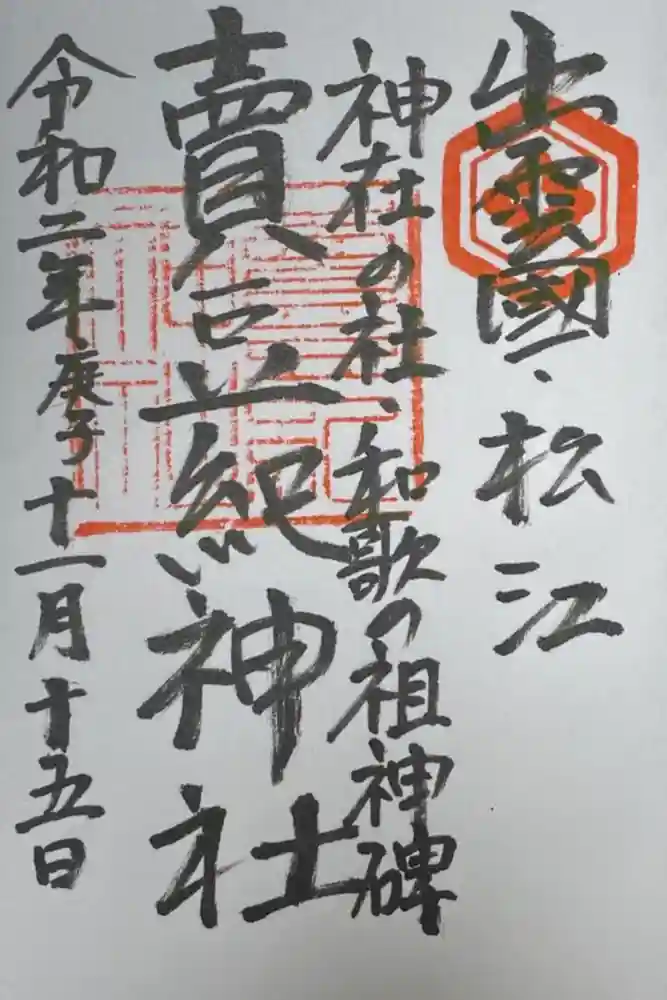 出雲國一、松江
神在の社、和歌の祖神碑
賣豆紀神社
令和二年庚子十一月十五日